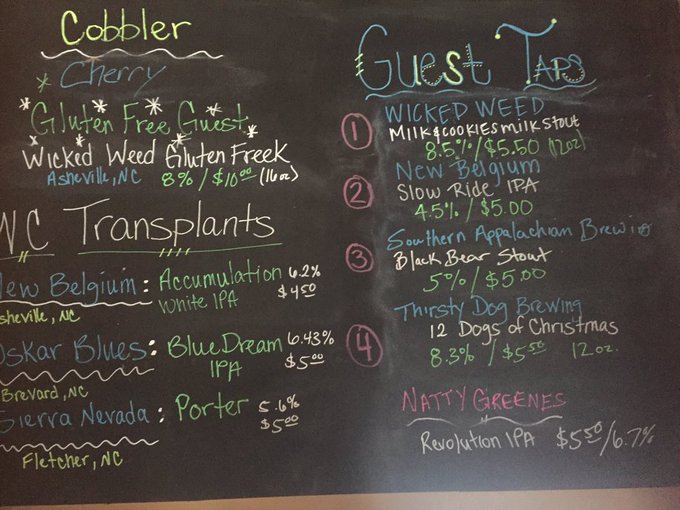 Cobbler
* Cherry
* Gluten * Free * Guest *
* Wicked Weed Gluten Freek
Asheville, NC 8% / $10.00 (16oz)
NC Transplants
New Belgium : Accumulation 6.2%
White IPA $4.50
sheville, NC
skar Blues : Blue Dream 6.43%
IPA $5.00
Brevard, NC
Sierra Nevada : Porter 5.6%
$5.00
Fletcher, NC
Guest Taps
1 WICKED WEED
Milk & cookies milk stout
8.5% / $5.50 (12oz)
2 New Belgium
Slow Ride IPA
4.5% / $5.00
3 Southern Appalachian Brewing
Black Bear Stout
5% / $5.00
4 Thirsty Dog Brewing
12 Dogs of Christmas
8.3% / $5.50 12oz.
NATTY GREENES
Revolution IPA $5.50/6.7%